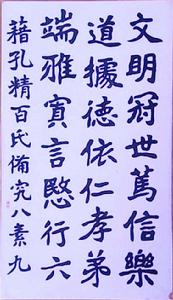 文明冠世篤信樂
道據德依仁孝弟
端雅寡言慜行六
藉孔精百氏備究八素九